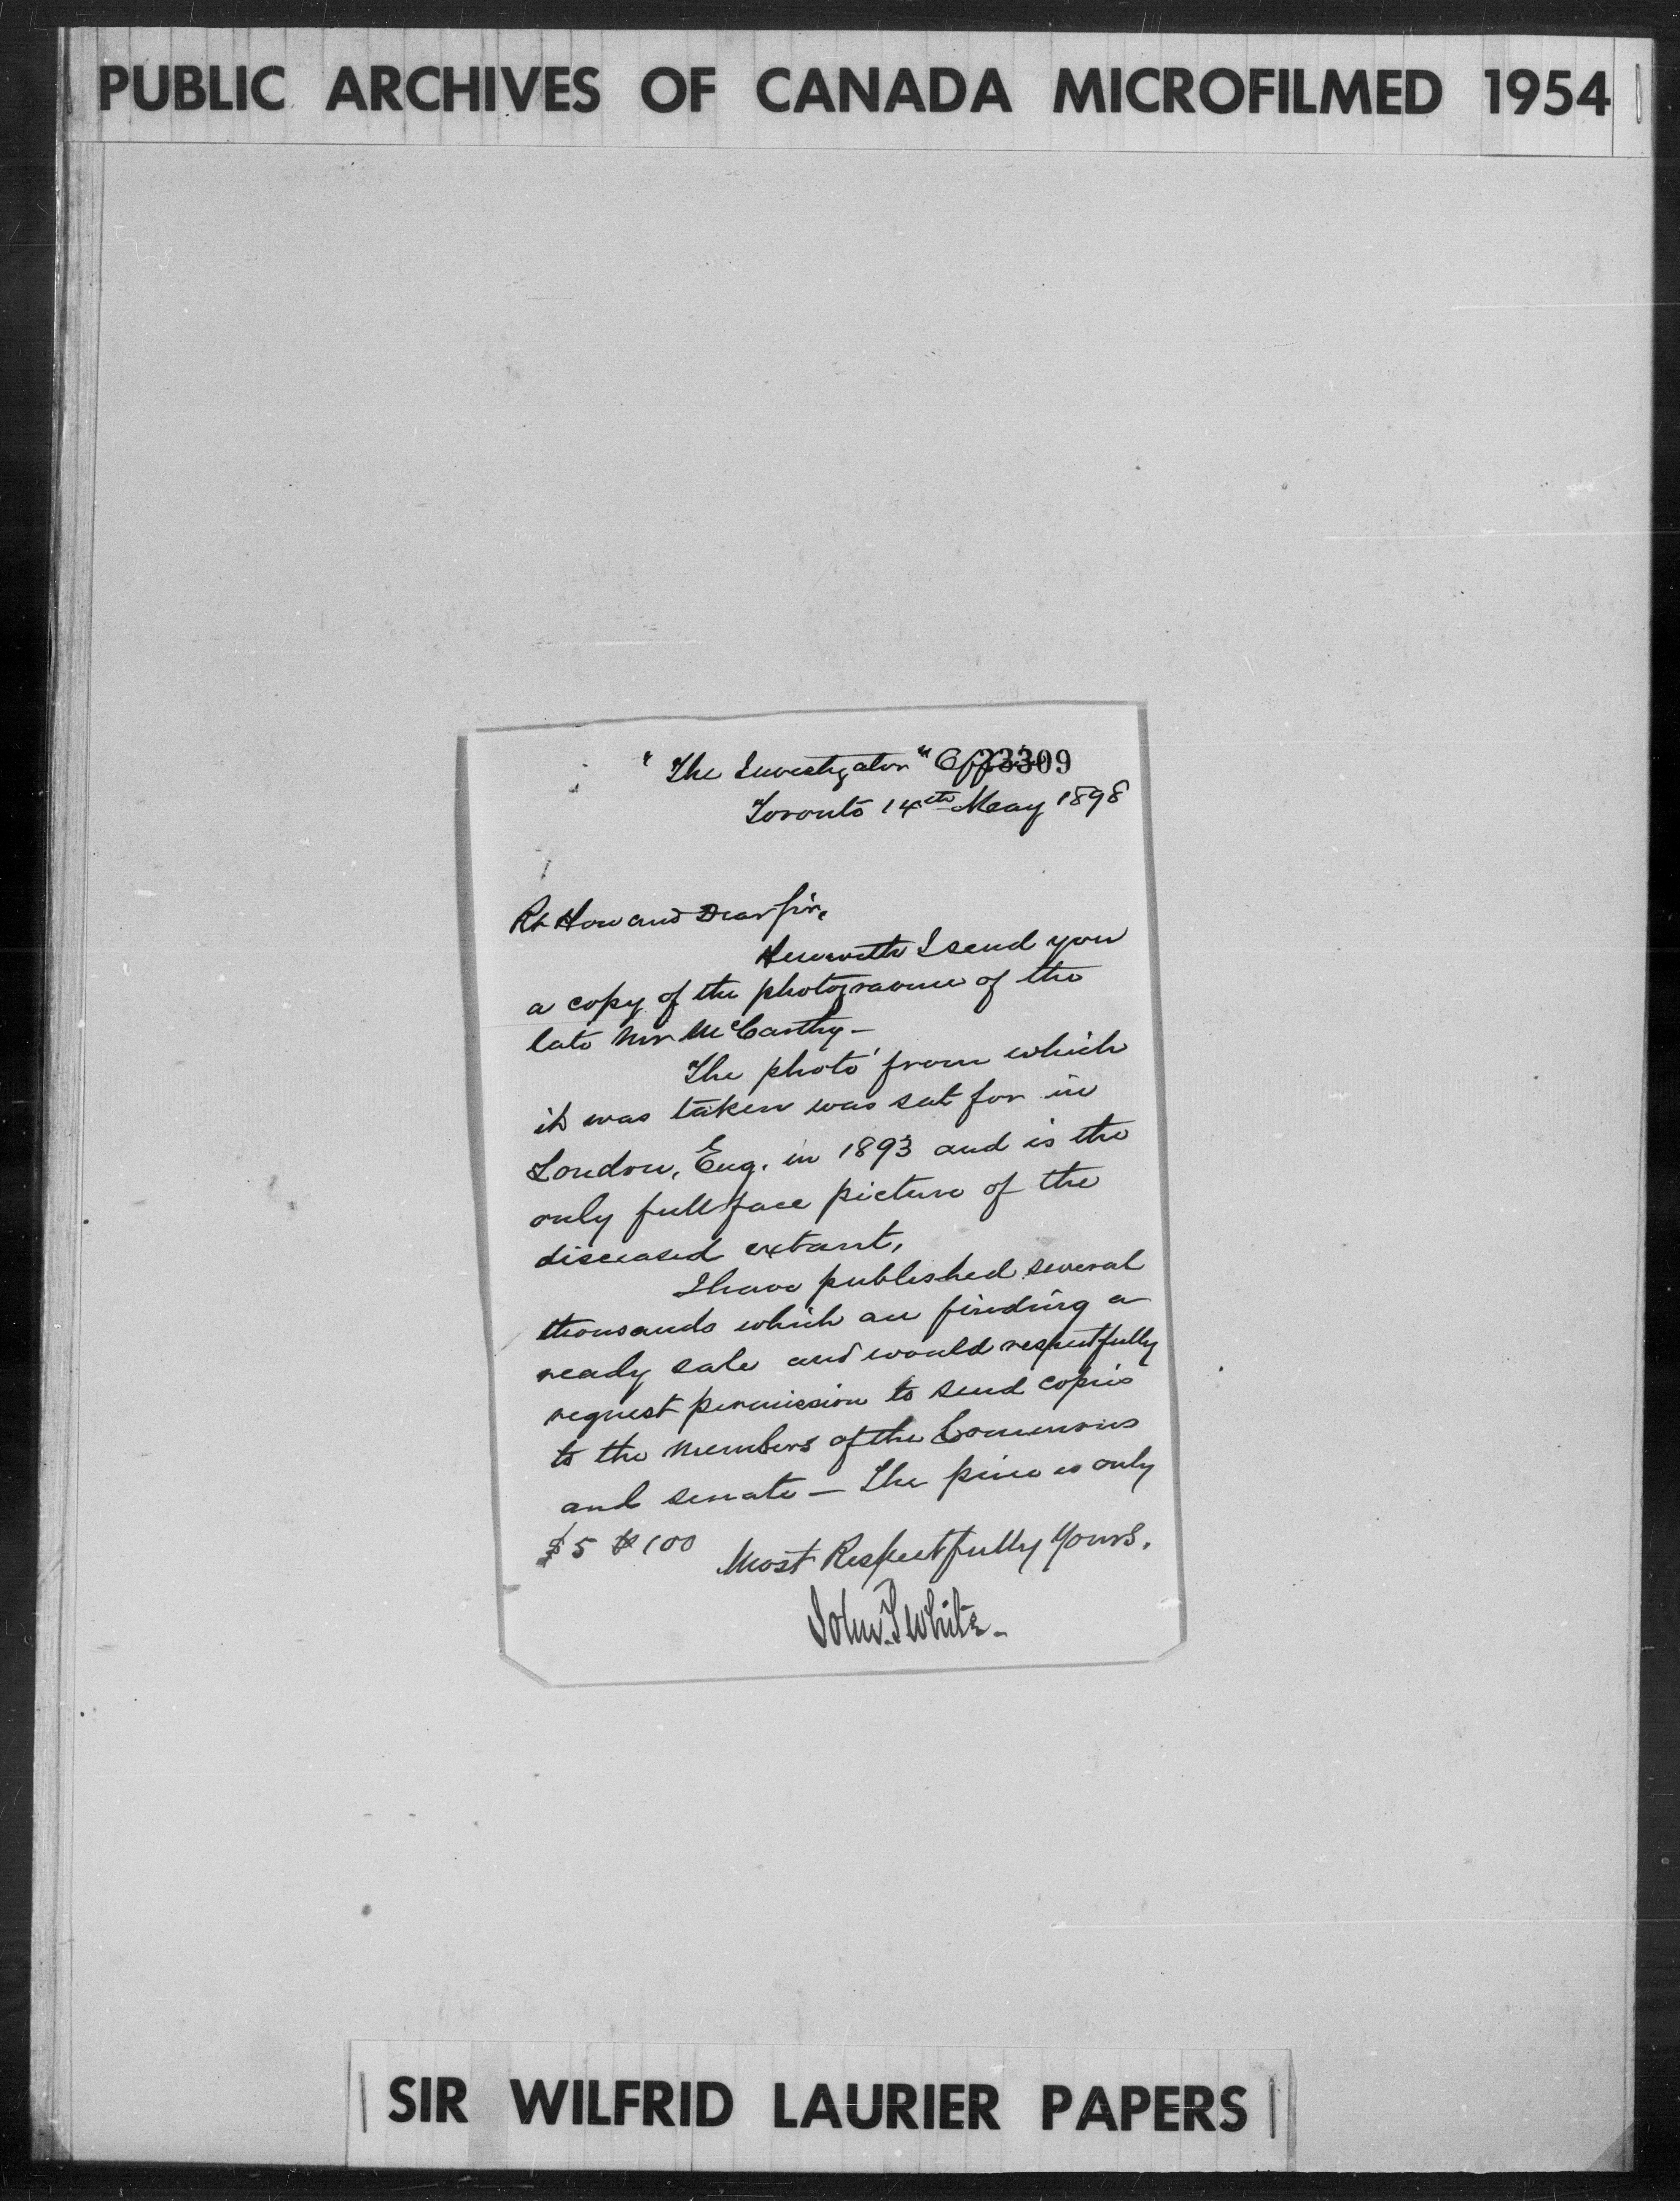 PUBLIC ARCHIVES OF CANADA MICROFILMED 1954
"The Investigator" Office
23309
Toronto 14th May 1898
Rt Hon and Dear Sir,
Herewith I send you
a copy of the photogravure of the
late Mr McCarthy -
The photo' from which
it was taken was sat for in
London, Eng. in 1893 and is the
only full face picture of the
diseased extant.
I have published several
thousands which are finding a
ready sale and would respectfully
request permission to send copies
to the members of the Commons
and senate - The price is only
$5 100
Most Respectfully Yours.
John. T White.
SIR WILFRID LAURIER PAPERS